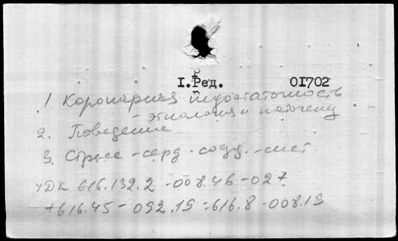 I. Ред. 01702
1 Коронарная недостаточность
- этиология и патогенез
2. Поведение
3. Стресс - серд - сосуд. - сист
УДК 616.132.2 - 008.46 - 02 +
+ 616.45 - 092.19 : 616.8 - 008.19